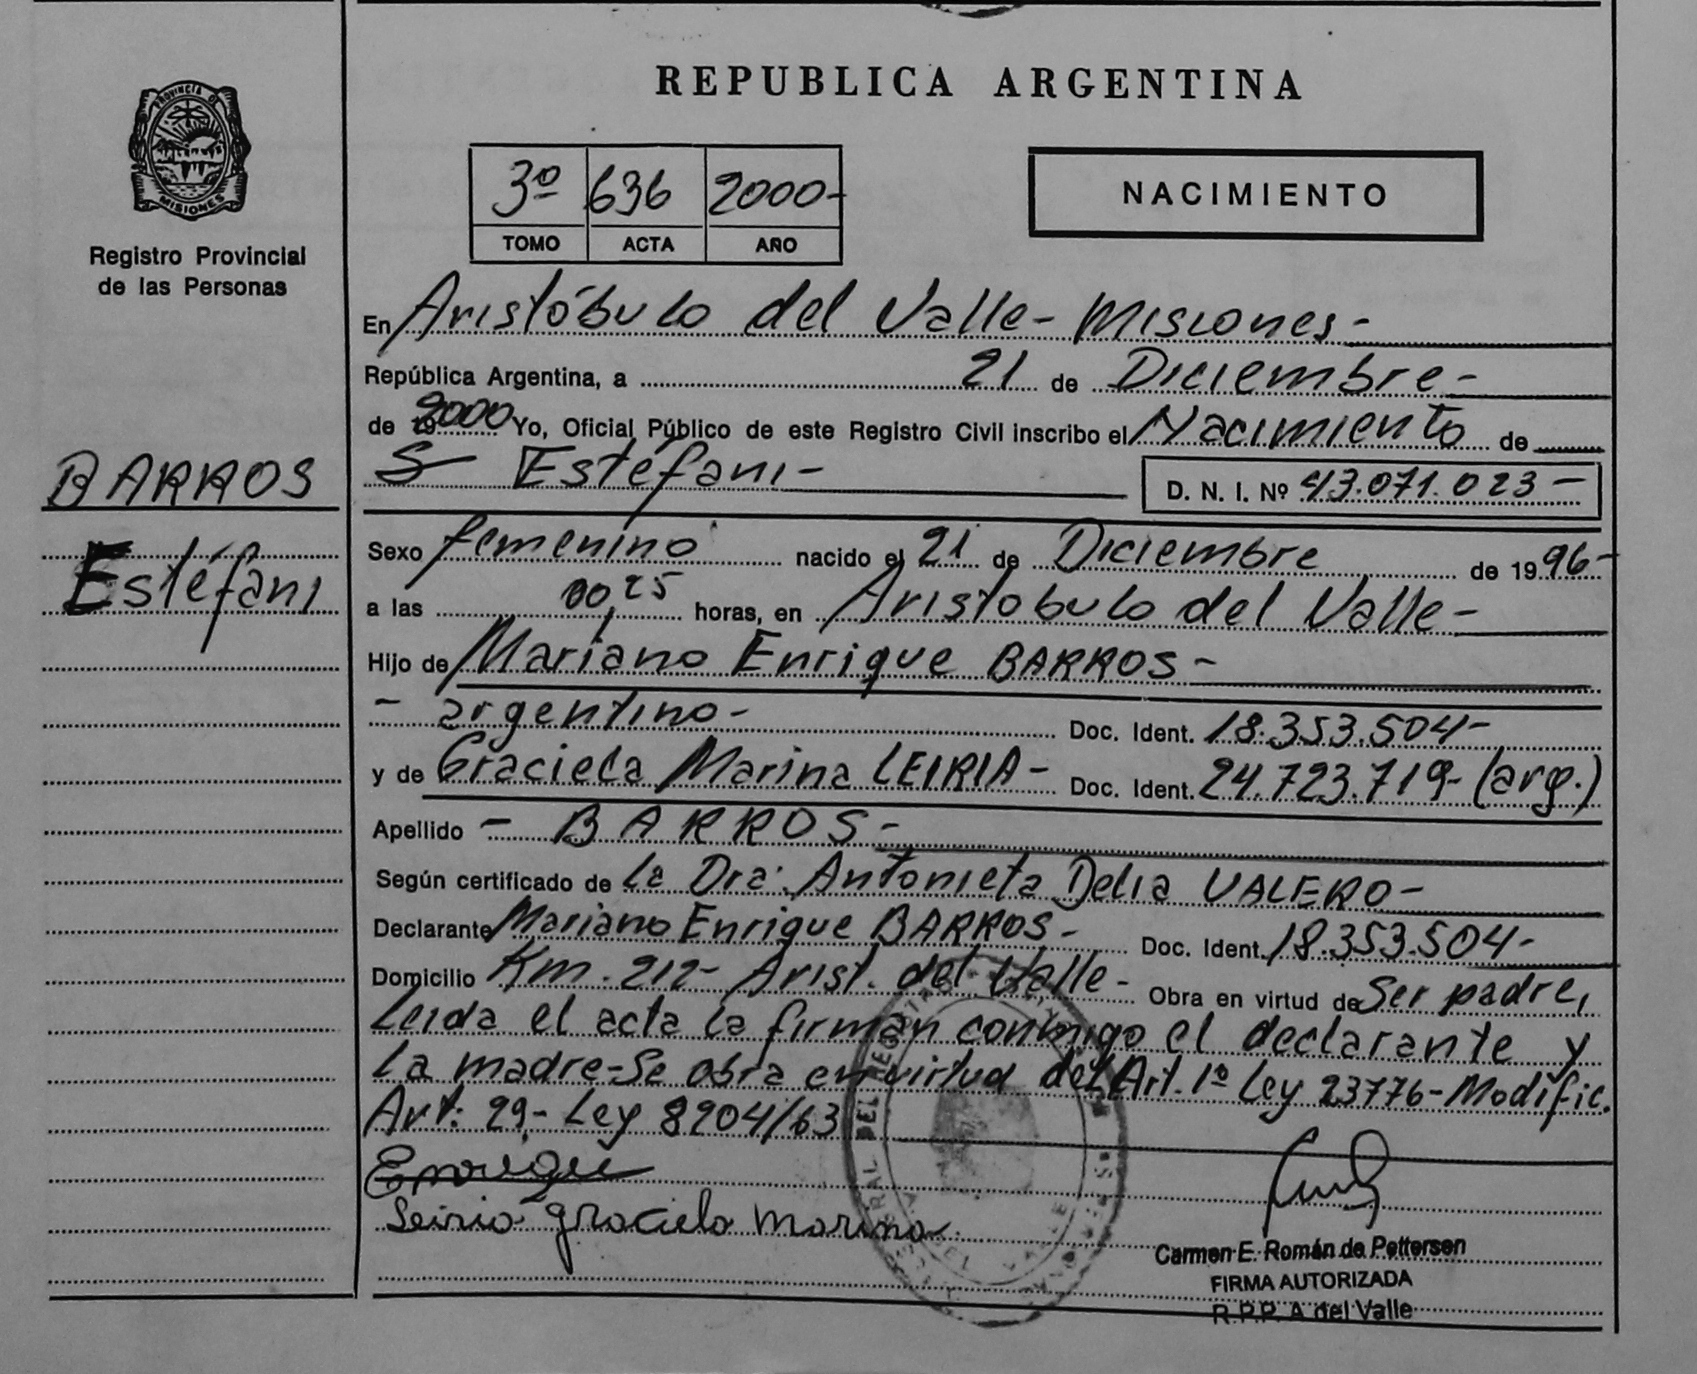 REPUBLICA ARGENTINA
PROVINCIA DE
MISIONES
Registro Provincial
de las Personas
3º 636 2000-
TOMO ACTA AÑO
NACIMIENTO
En Aristóbulo del Valle - Misiones -
República Argentina, a 21 de Diciembre -
de 19 2000 Yo, Oficial Público de este Registro Civil inscribo el Nacimiento de
Estéfani -
D. N. I. Nº 43.071.023 -
BARROS
Estéfani
Sexo femenino nacido el 21 de Diciembre de 1996-
a las 00,25 horas, en Aristobulo del Valle -
Hijo de Mariano Enrique BARROS -
- argentino - Doc. Ident. 18.353.504-
y de Graciela Marina LEIRIA - Doc. Ident. 24.723.719- (arg.)
Apellido - BARROS -
Según certificado de La Dra. Antonieta Delia VALERO -
Declarante Mariano Enrique BARROS - Doc. Ident. 18.353.504-
Domicilio Km. 212 - Arist. del Valle - Obra en virtud de Ser padre,
Leida el acta la firman conmigo el declarante y
La madre - Se obra en virtud del Art. 1º Ley 23776 - Modific.
Art: 29,- Ley 8204/63
Enrique
Leiria graciela marina
Carmen E. Román de Pettersen
FIRMA AUTORIZADA
R.P.P. A del Valle